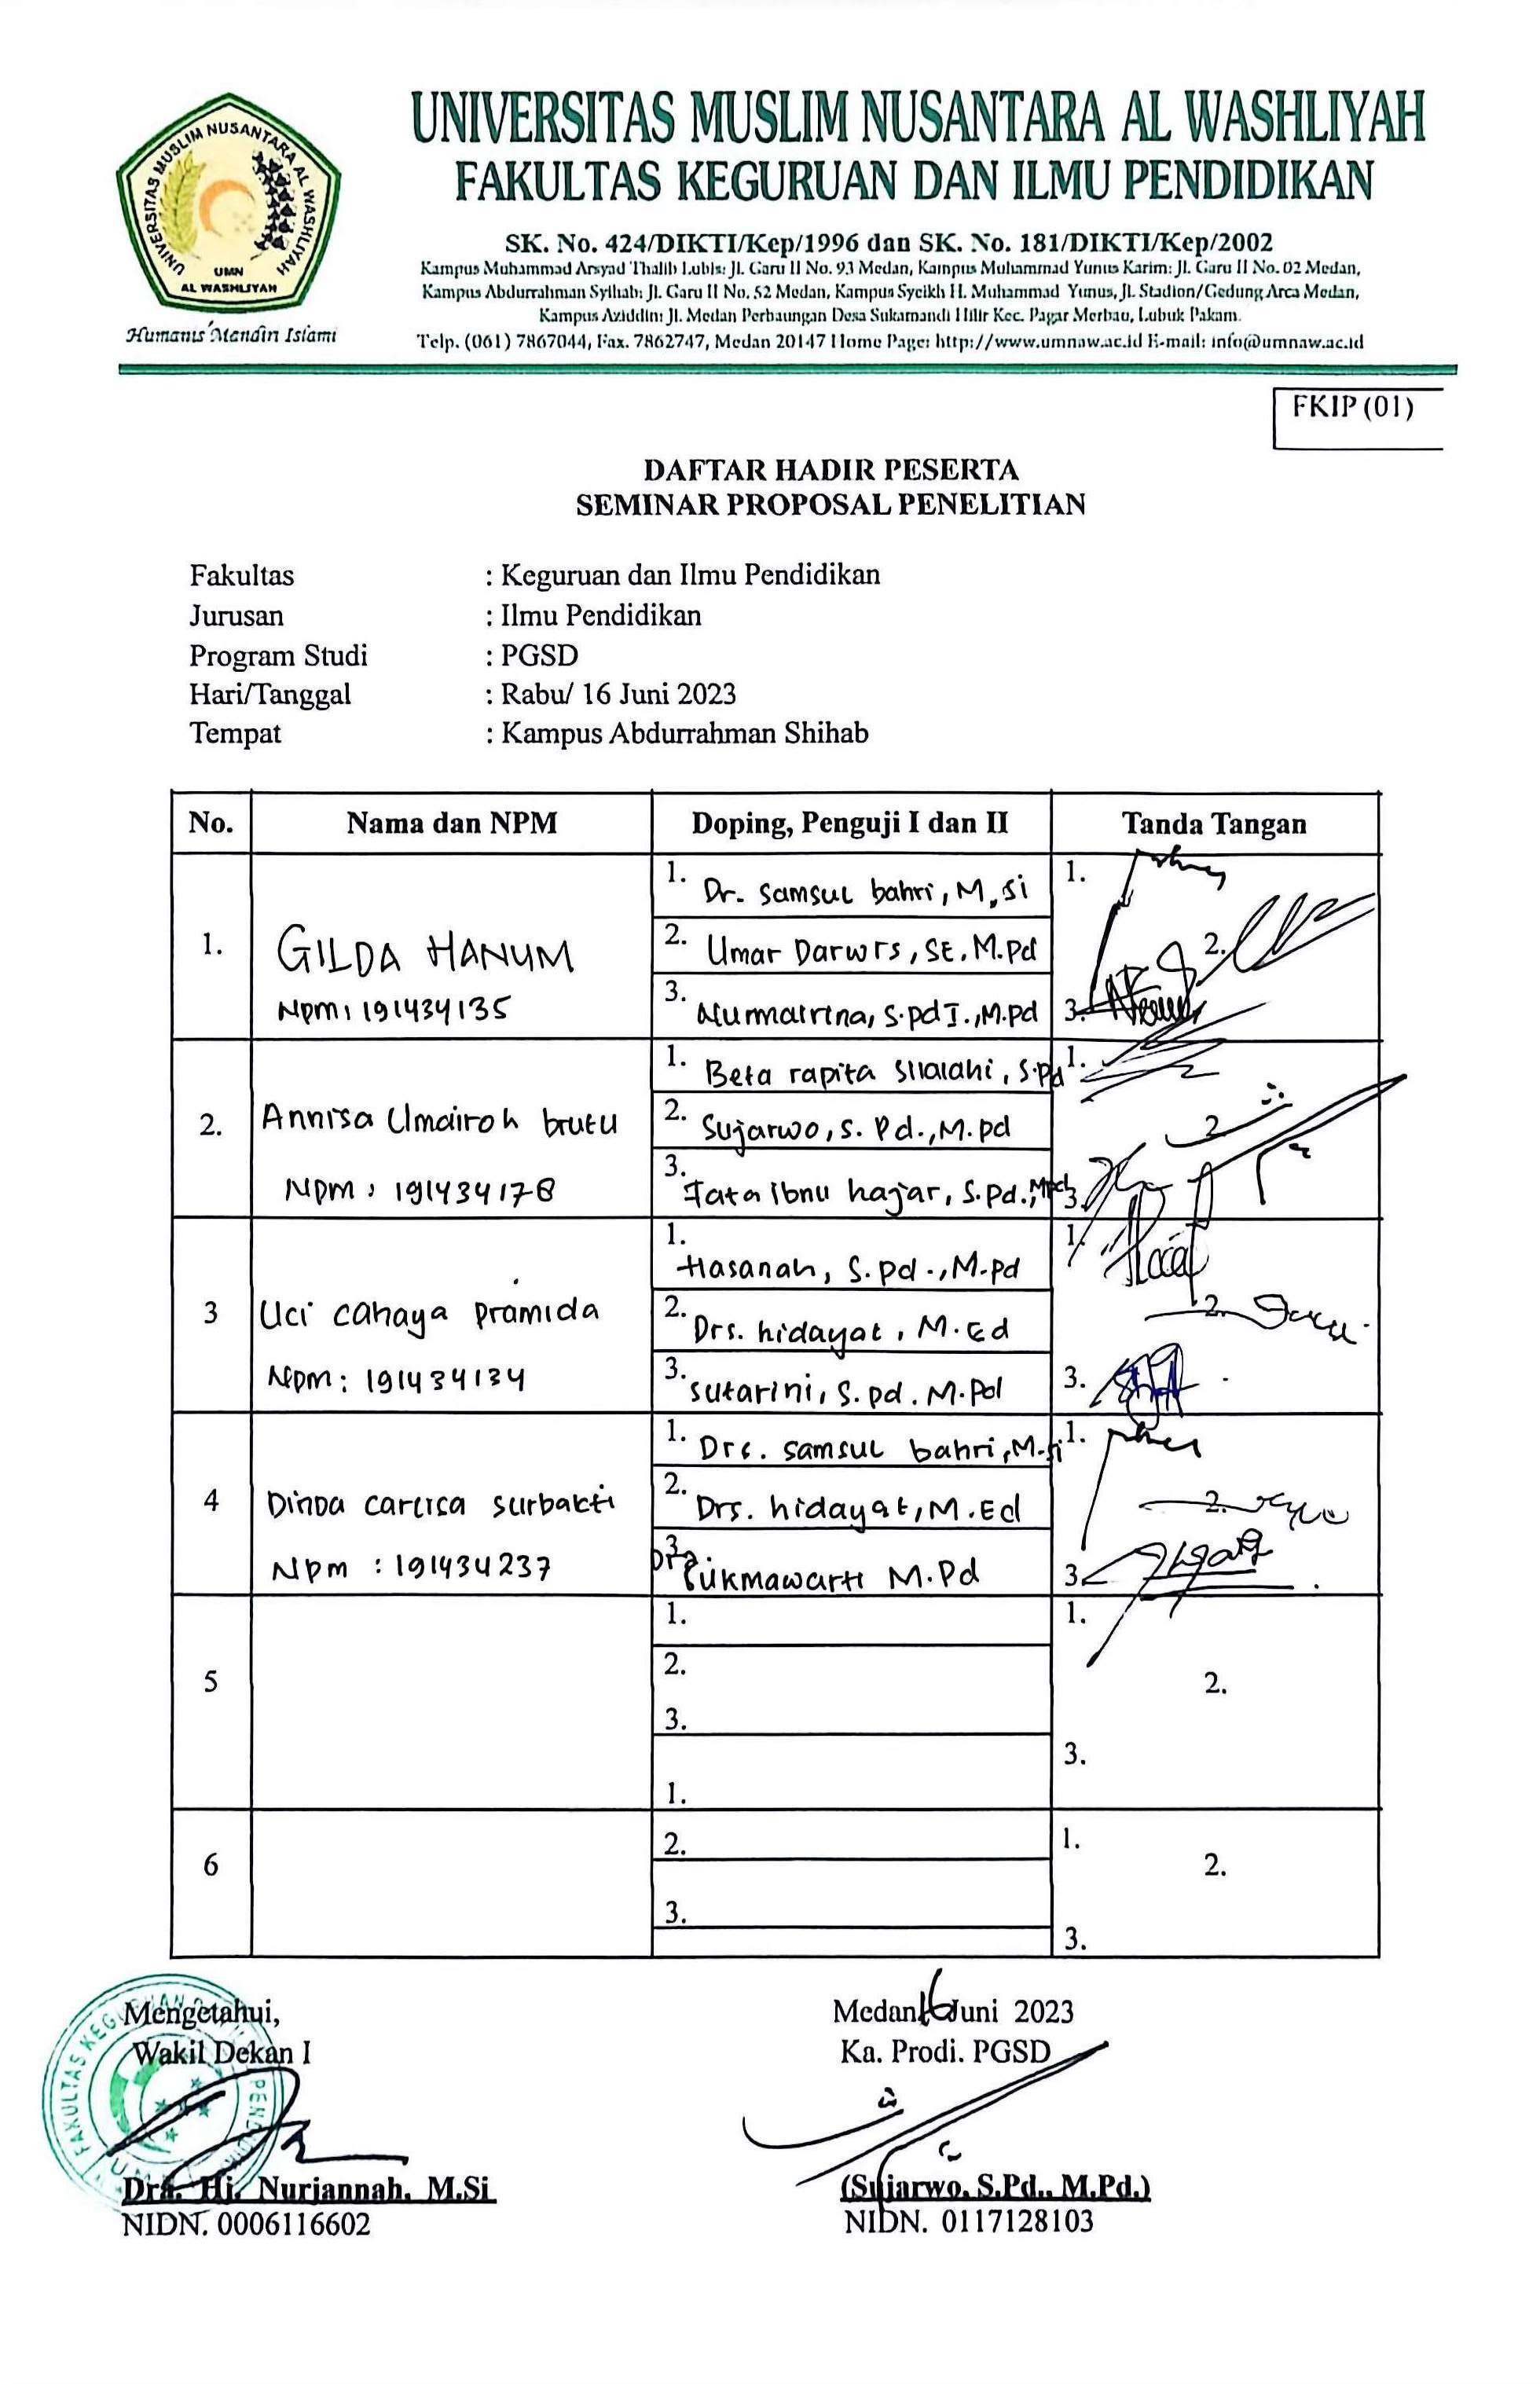 UNIVERSITAS MUSLIM NUSANTARA AL WASHLIYAH
UMN
AL WASHLIYAH
Humanis Mandiri Islami
UNIVERSITAS MUSLIM NUSANTARA AL WASHLIYAH
FAKULTAS KEGURUAN DAN ILMU PENDIDIKAN
SK. No. 424/DIKTI/Kep/1996 dan SK. No. 181/DIKTI/Kep/2002
Kampus Muhammad Arsyad Thalib Lubis: Jl. Garu II No. 93 Medan, Kampus Muhammad Yunus Karim: Jl. Garu II No. 02 Medan,
Kampus Abdurrahman Syihab: Jl. Garu II No. 52 Medan, Kampus Syeikh H. Muhammad Yunus, Jl. Stadion/Gedung Arca Medan,
Kampus Aziddin: Jl. Medan Perbaungan Desa Sukamandi Hilir Kec. Pagar Merbau, Lubuk Pakam.
Telp. (061) 7867044, Fax. 7862747, Medan 20147 Home Page: http://www.umnaw.ac.id E-mail: info@umnaw.ac.id
FKIP (01)
DAFTAR HADIR PESERTA
SEMINAR PROPOSAL PENELITIAN
Fakultas : Keguruan dan Ilmu Pendidikan
Jurusan : Ilmu Pendidikan
Program Studi : PGSD
Hari/Tanggal : Rabu/ 16 Juni 2023
Tempat : Kampus Abdurrahman Shihab
No. Nama dan NPM Doping, Penguji I dan II Tanda Tangan
1. GILDA HANUM
Npm: 191434135
1. Dr. Samsul bahri, M,si
2. Umar Darwis, St, M.Pd
3. Nurmairina, S.pdI.,M.pd
1.
2.
3.
2. Annisa Umairoh brutu
Npm: 191434178
1. Beta rapita silalahi, S.pd
2. Sujarwo, S. Pd.,M.pd
3. Tata ibnu hajar, S.pd.,Mpd
1.
2
3.
3 Uci cahaya pramida
Npm: 191434134
1. Hasanah, S.pd.,M.pd
2. Drs. hidayat, M.Ed
3. sutarini, S.pd. M.Pd
1.
2.
3.
4 Dinda carlisa surbakti
Npm : 191434237
1. Drs. samsul bahri,M.si
2. Drs. hidayat, M.Ed
3. Dra Sukmawarti M.Pd
1.
2.
3.
5
1.
2.
3.
1.
2.
3.
6
1.
2.
3.
1.
2.
3.
FAKULTAS KEGURUAN
Mengetahui,
Wakil Dekan I
Dra. Hj. Nurjannah, M.Si
NIDN. 0006116602
Medan 16 Juni 2023
Ka. Prodi. PGSD
(Sujarwo, S.Pd., M.Pd.)
NIDN. 0117128103